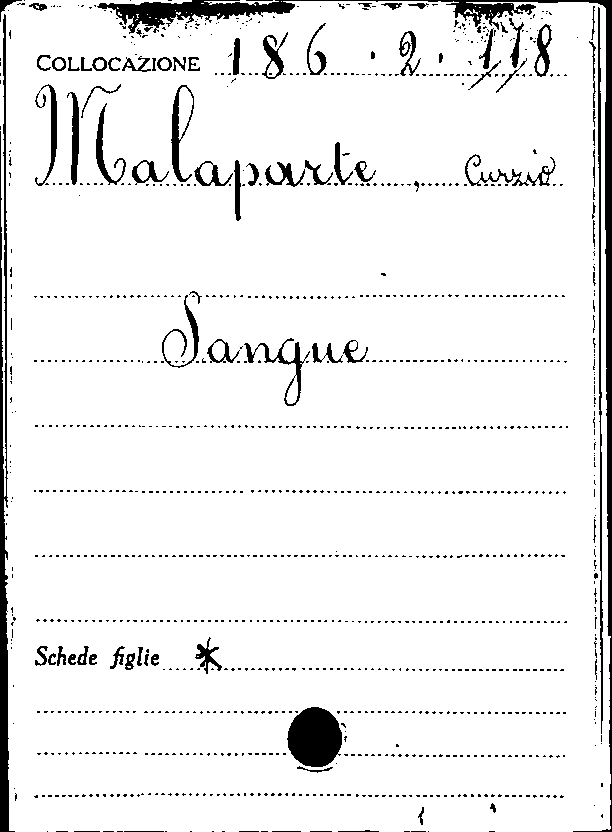 COLLOCAZIONE 186.2.118
Malaparte, Curzio
Sangue
Schede figlie *